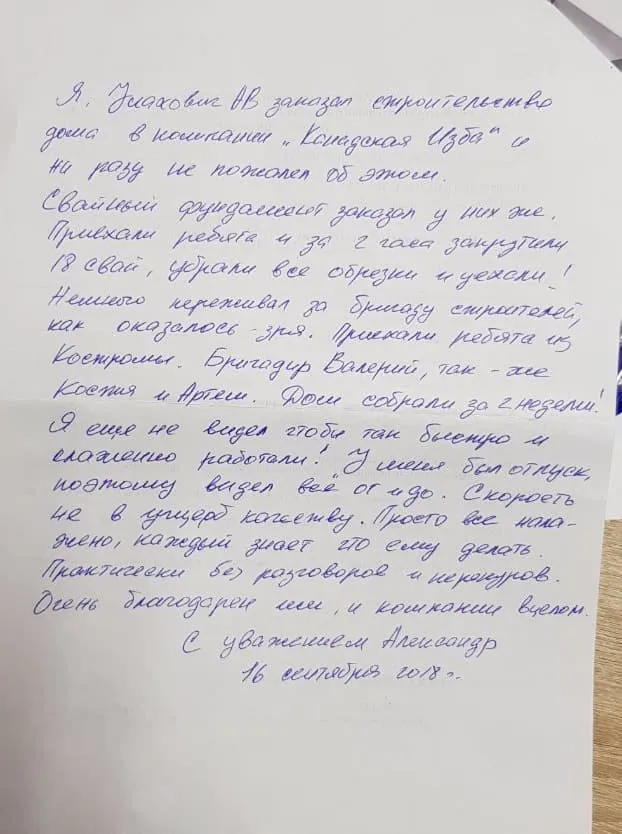 Я, Улахович АВ заказал строительство
дома в компании „Канадская Изба" и
ни разу не пожалел об этом.
Свайный фундамент заказал у них же.
Приехали ребята и за 2 часа закрутили
18 свай, убрали все обрезки и уехали!
Немного переживал за бригаду строителей,
как оказалось - зря. Приехали ребята из
Костромы. Бригадир Валерий, так-же
Костя и Артем. Дом собрали за 2 недели!
Я еще не видел чтобы так быстро и
слаженно работали! У меня был отпуск,
поэтому видел всё от и до. Скорость
не в ущерб качеству. Просто все нала-
жено, каждый знает что ему делать.
Практически без разговоров и перекуров.
Очень благодарен им, и компании вцелом.
С уважением Александр
16 сентября 2018г.